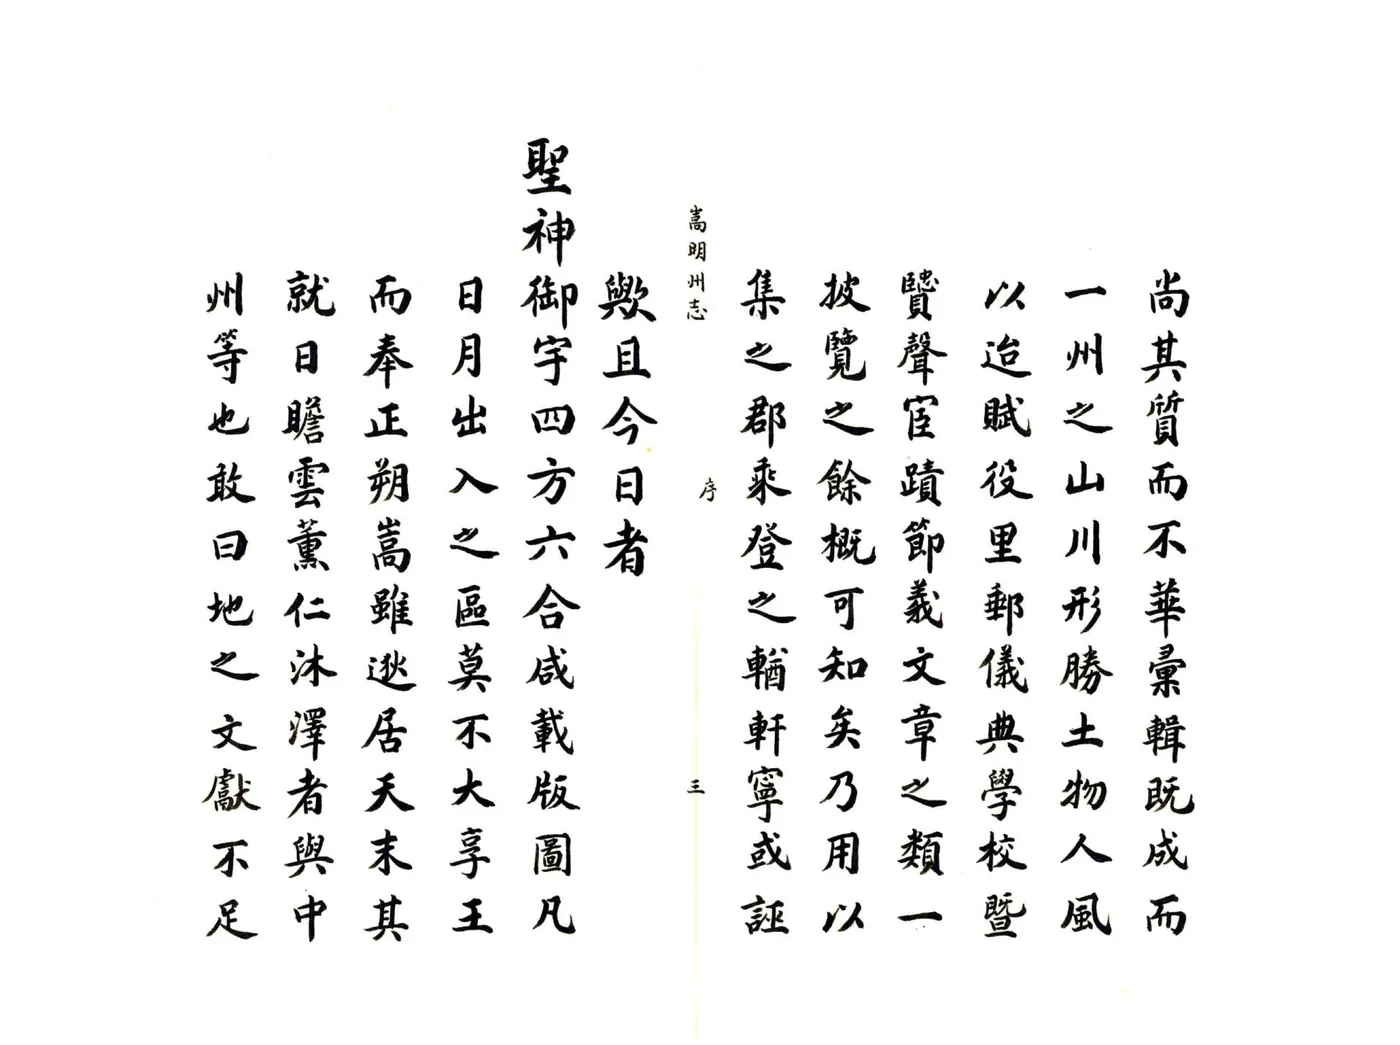 尚其質而不華彙輯既成而
一州之山川形勝土物人風
以迨賦役里郵儀典學校暨
贒聲宦蹟節義文章之類一
披覽之餘概可知矣乃用以
集之郡乘登之輶軒寧或誣
嵩明州志
序
三
歟且今日者
聖神御宇四方六合咸載版圖凡
日月出入之區莫不大享王
而奉正朔嵩雖逖居天末其
就日瞻雲薰仁沐澤者與中
州等也敢曰地之文獻不足